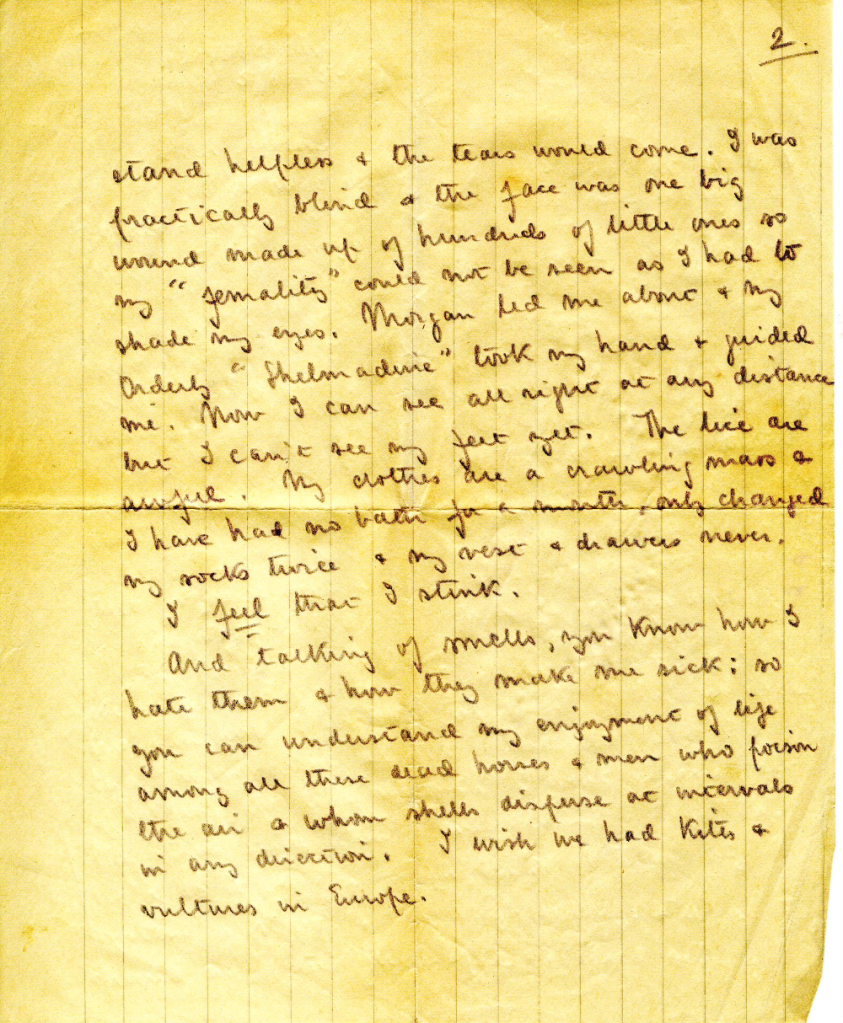 2.
stand helpless & the tears would come. I was
practically blind & the face was one big
wound made up of hundreds of little ones so
my "femality" could not be seen as I had to
shade my eyes. Morgan led me about & my
Orderly "Shelmadine" took my hand & guided
me. Now I can see all right at any distance
but I can't see my feet yet. The lice are
awful. My clothes are a crawling mass &
I have had no bath for a month, only changed
my socks twice & my vest & drawers never.
I feel that I stink.
And talking of smells, you know how I
hate them & how they make me sick; so
you can understand my enjoyment of life
among all these dead horses & men who poison
the air & whom shells disperse at intervals
in any direction. I wish we had Kites &
vultures in Europe.